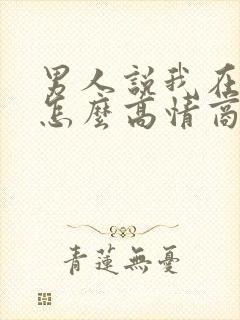 男人說我在
怎麼高情商
青蓮無憂